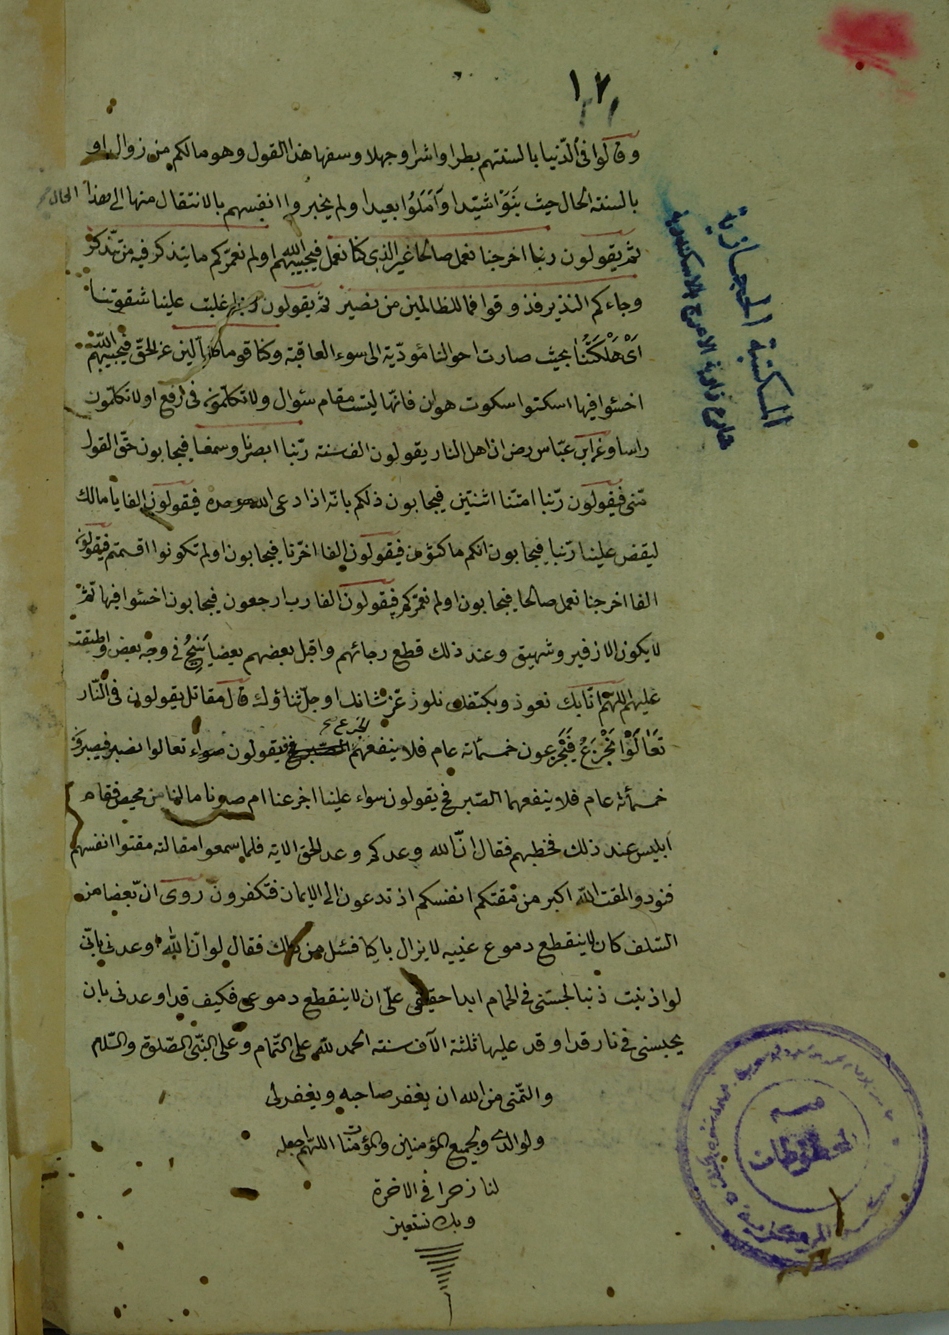 ١٢١
وقالوا فى الدنيا بالسنتهم بطرا واشرا وجهلا وسفها هذا القول وهو مالكم من زوال او
بالسنة الحال حيث بنوا شيدا وآملوا بعيدا ولم يخبروا انفسهم بالانتقال منها الى هذا الحال
ثم يقولون ربنا اخرجنا نعمل صالحا غير الذى كنا نعمل فيجيبهم الله اولم نعمركم ما يتذكر فيه من تذكر
وجاءكم النذير فذوقوا فما للظالمين من نصير ثم يقولون ربنا غلبت علينا شقوتنا
اى ملكتنا بحيث صارت احوالنا مؤدية الى سوء العاقبة وكنا قوما ضالين عن الحق فيجيبهم الله
اخسئوا فيها اسكتوا سكوت هوان فانها ليست مقام سئوال ولا تكلمون فى رفع او لا تكلمون
راسا وعن ابن عباس رض ان اهل النار يقولون الف سنة ربنا ابصرنا وسمعنا فيجابون حق القول
منى فيقولون ربنا امتنا اثنتين فيجابون ذلكم بانه اذا دعى الله وحده فيقولون الفا يا مالك
ليقض علينا ربنا فيجابون انكم ماكثون فيقولون الفا اخرنا فيجابون اولم تكونوا اقسمتم فيقولون
الفا اخرجنا نعمل صالحا فيجابون اولم نعمركم فيقولون الفا رب ارجعون فيجابون اخسئوا فيها ثم
لا يكون الا زفير وشهيق وعند ذلك قطع رجائهم واقبل بعضهم بعضا ينبح فى وجه بعض واطبقت
عليهم اللهم انا بك نعوذ وبكنفك نلوذ عز شانك وجل ثناؤك قال مقاتل يقولون فى النار
تعالوا نجزع فيجزعون خمسمائة عام فلا ينفعهم الجزع فيقولون تعالوا نصبر فيصبرون
خمسمائة عام فلا ينفعهم الصبر فح يقولون سواء علينا اجزعنا ام صبرنا مالنا من محيص فقام
ابليس عند ذلك فخطبهم فقال ان الله وعدكم وعد الحق الاية فلما سمعوا مقالته مقتوا انفسهم
فنودوا لمقت الله اكبر من مقتكم انفسكم اذ تدعون الى الايمان فتكفرون روى ان بعضا من
السلف كان لا ينقطع دموع عنيه لا يزال باكيا فسئل من ذلك فقال لو ان الله وعدنى بانى
لو اذنبت ذنبا لحبسنى فى الحمام ابدا حقيق على ان لا ينقطع دموعى فكيف قد اوعدنى بان
يحبسنى فى نار قد اوقد عليها ثلثة الآف سنة الحمد لله على التمام وعلى النبى الصلوة والسلام
والتمنى من الله ان يغفر صاحبه ويغفر لى
ولوالدى ولجميع المؤمنين والمؤمنات اللهم اجعله
لنا زخرا فى الاخرة
وبك نستعين
المكتبة الحجازية
شارع زاوية الاعرج بالاسكندرية
المخطوطات